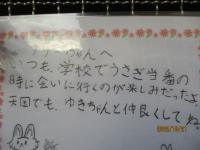 ちゃんへ
いつも、学校でうさぎ当番の
時に会いに行くのが楽しみだったよ。
天国でも、ゆきちゃんと仲良くしてね。